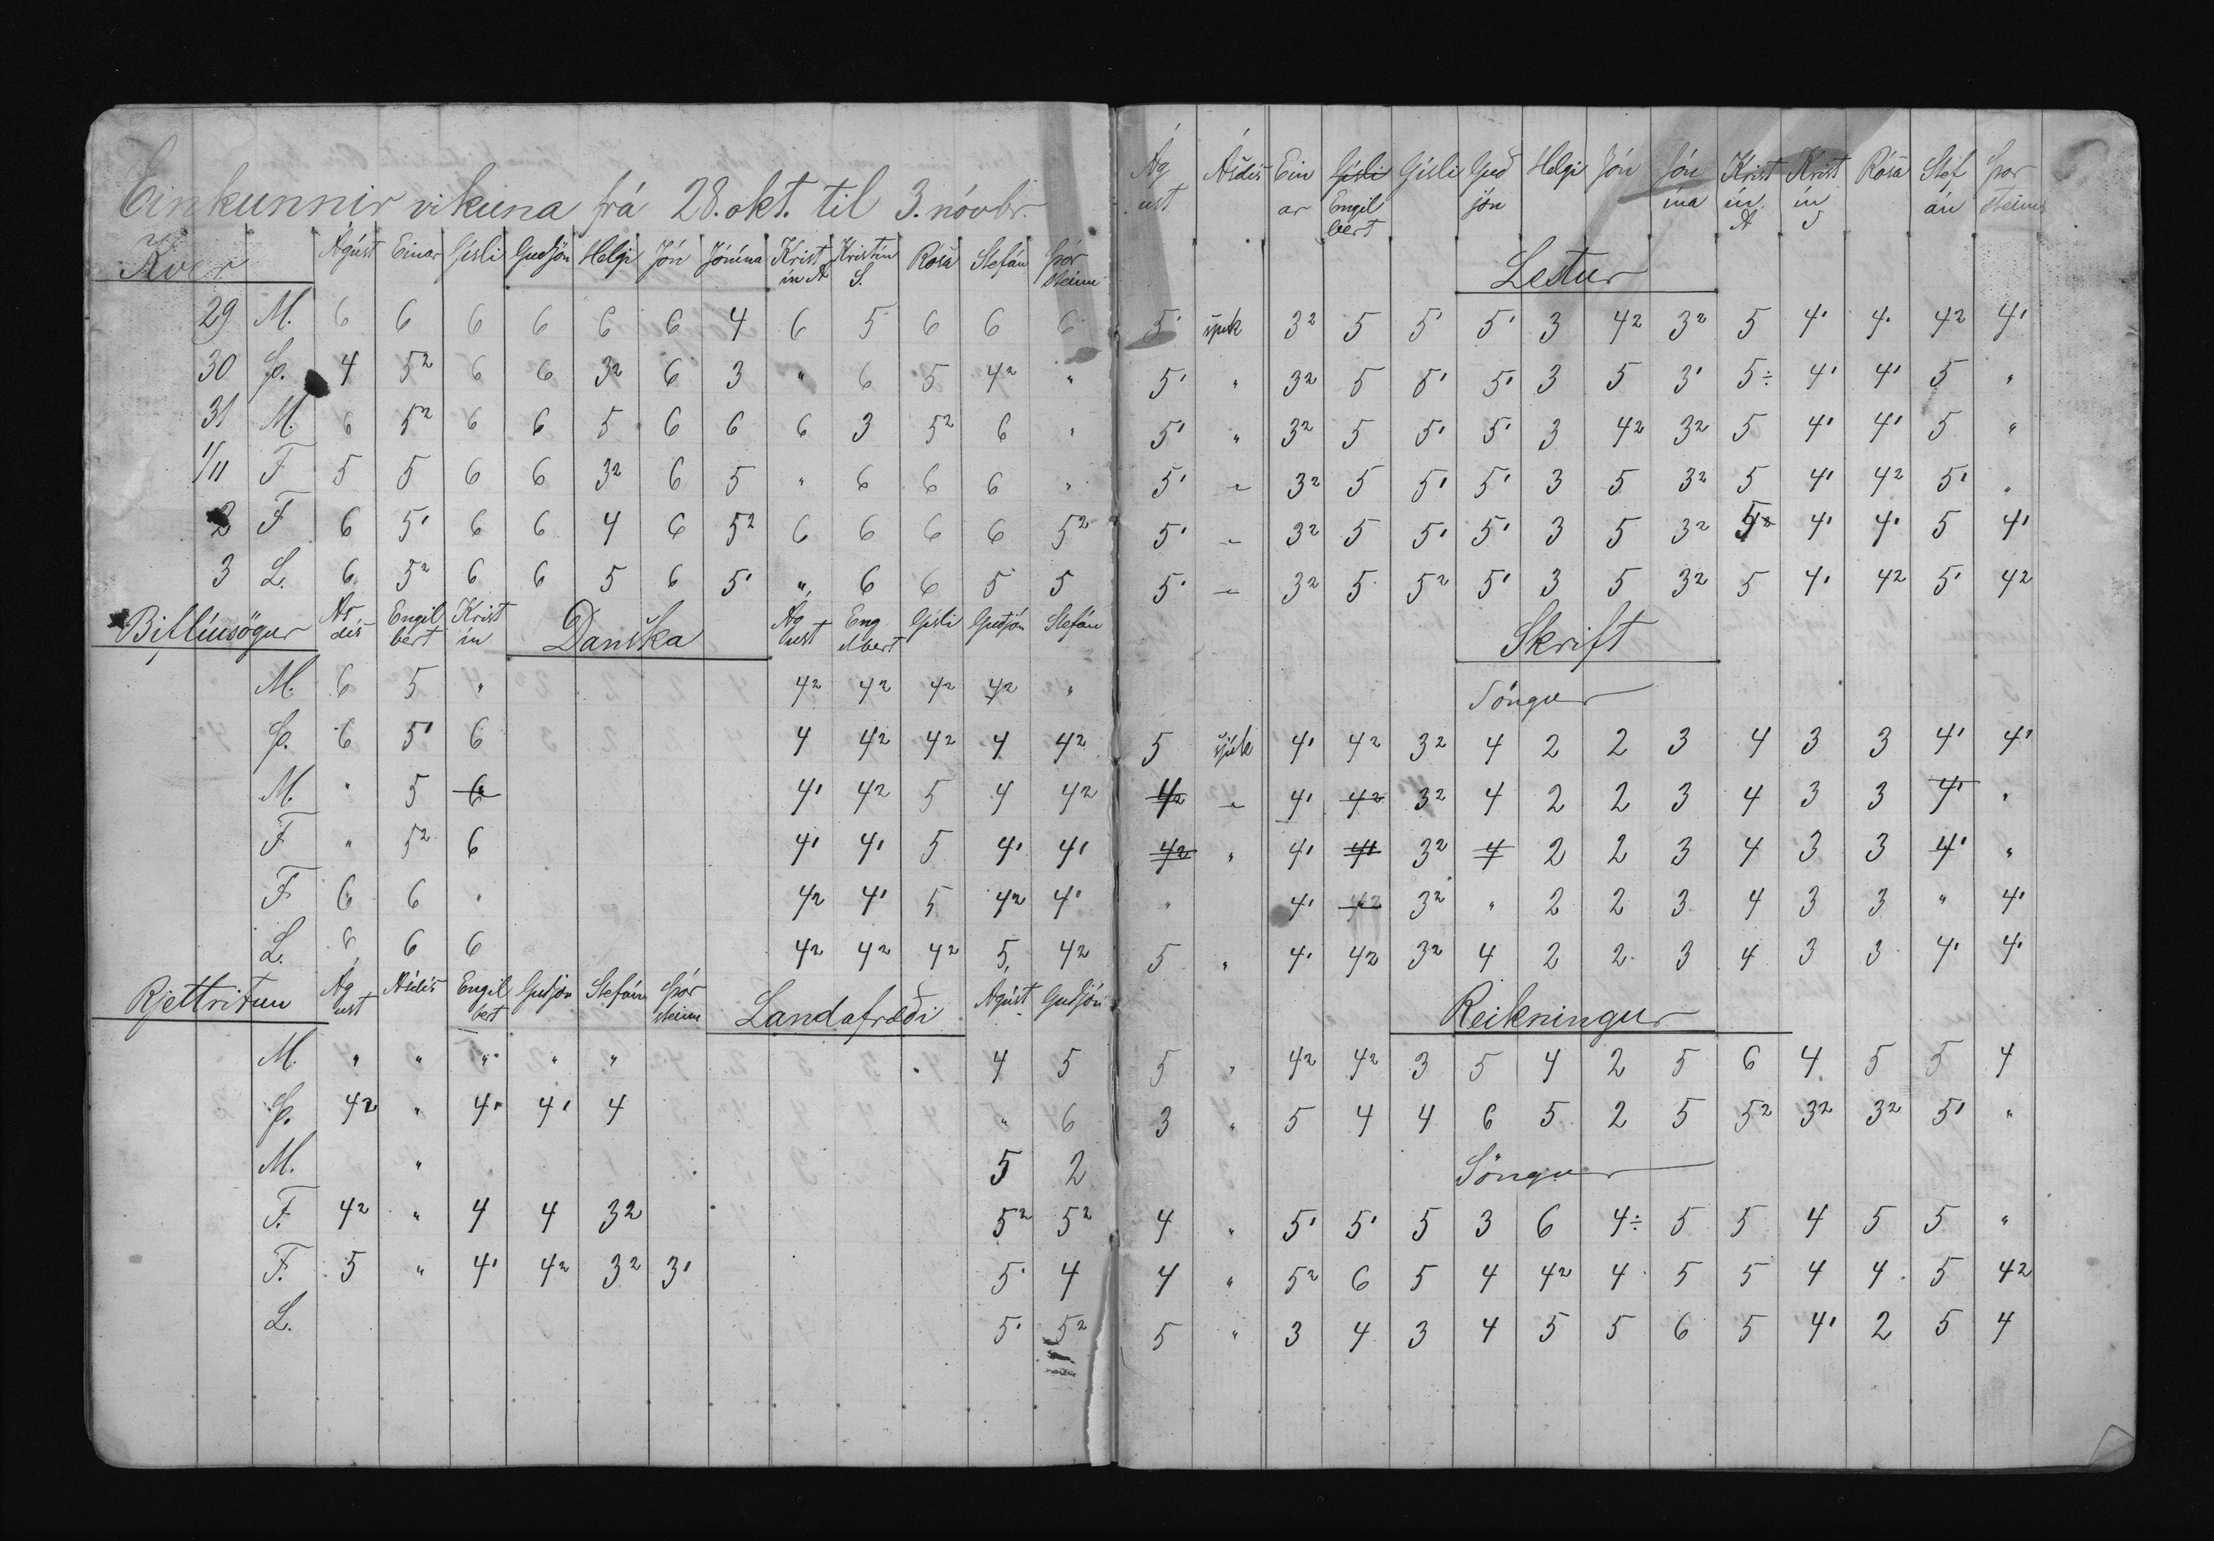 Einkunnir vikuna frá 28. okt. til 3. nóvbr.
Kver Ágúst Einar Gísli Guðjón Helgi Jón Jónína Kristín A Kristín S. Rósa Stefán Þórsteinn
29 M. 6 6 6 6 6 6 4 6 5 6 6 6
30 Þ. 4 5² 6 6 3² 6 3 " 6 5 4² "
31 M. 6 5² 6 6 5 6 6 6 3 5² 6 "
1/11 F 5 5 6 6 3² 6 5 " 6 6 6 "
2 F 6 5¹ 6 6 4 6 5² 6 6 6 6 5²
3 L. 6 5² 6 6 5 6 5¹ " 6 6 5 5
Biflíusögur Ásdís Engilbert Kristín Danska Ágúst Engilbert Gísli Guðjón Stefán
M. 6 5 " 4² 4² 4² 4² "
Þ. 6 5¹ 6 4 4² 4² 4 4²
M. " 5 6 4¹ 4² 5 4 4²
F " 5² 6 4¹ 4¹ 5 4¹ 4¹
F 6 6 " 4² 4¹ 5 4² 4¹
L. 6 6 6 4² 4² 4² 5 4²
Rjettritun Ágúst Ásdís Engilbert Guðjón Stefán Þórsteinn Landafræði Ágúst Guðjón
M. " " " " " 4 5
Þ. 4² " 4¹ 4¹ 4 " 6
M. " 5 2
F. 4² " 4 4 3² 5² 5²
F. 5 " 4¹ 4² 3² 3¹ 5¹ 4
L. 5¹ 5²
Ágúst Ásdís Einar Gísli Engilbert Gísli Guðjón Helgi Jón Jónína Kristín A Kristín S Rósa Stefán Þorsteinn
Lestur
5¹ sjúk 3² 5 5¹ 5¹ 3 4² 3² 5 4¹ 4¹ 4² 4¹
5¹ " 3² 5 5¹ 5¹ 3 5 3¹ 5÷ 4¹ 4¹ 5 "
5¹ " 3² 5 5¹ 5¹ 3 4² 3² 5 4¹ 4¹ 5 "
5¹ " 3² 5 5¹ 5¹ 3 5 3² 5 4¹ 4² 5¹ "
5¹ " 3² 5 5¹ 5¹ 3 5 3² 5 4¹ 4¹ 5 4¹
5¹ " 3² 5 5² 5¹ 3 5 3² 5 4¹ 4² 5¹ 4²
Skrift
Söngur
5 sjúk 4¹ 4² 3² 4 2 2 3 4 3 3 4¹ 4¹
4² " 4¹ 4² 3² 4 2 2 3 4 3 3 4¹ "
4² " 4¹ 4¹ 3² 4 2 2 3 4 3 3 4¹ "
" 4¹ 4² 3² " 2 2 3 4 3 3 " 4¹
5 " 4¹ 4² 3² 4 2 2 3 4 3 3 4¹ 4¹
Reikningur
5 " 4² 4² 3 5 4 2 5 6 4 5 5 4
3 " 5 4 4 6 5 2 5 5² 3² 3² 5¹ "
Söngur
4 " 5¹ 5¹ 5 3 6 4÷ 5 5 4 5 5 "
4 " 5² 6 5 4 4² 4 5 5 4 4 5 4²
5 " 3 4 3 4 5 5 6 5 4¹ 2 5 4